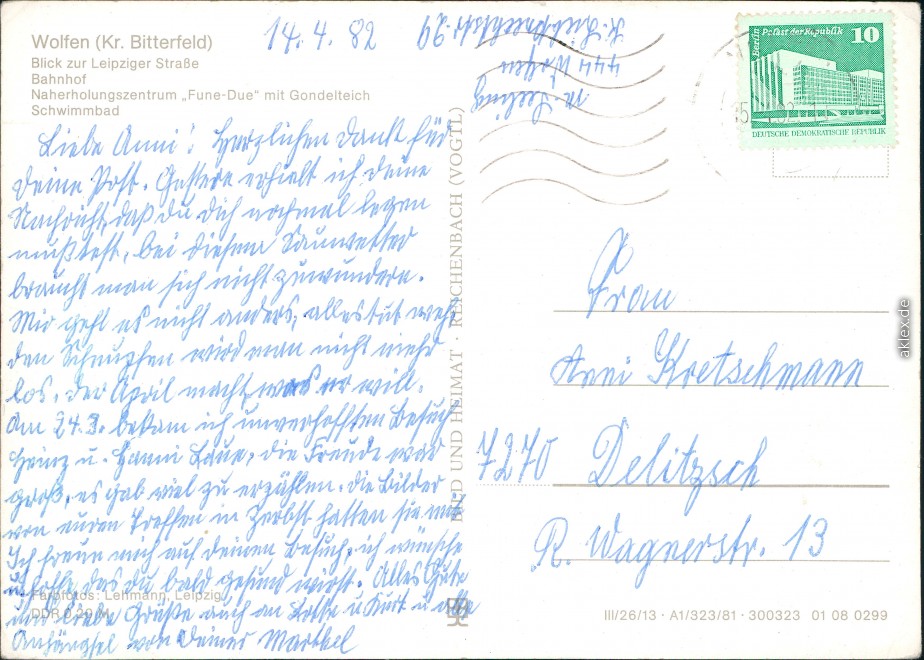 Wolfen (Kr. Bitterfeld)
Blick zur Leipziger Straße
Bahnhof
Naherholungszentrum „Fune-Due" mit Gondelteich
Schwimmbad
14. 4. 82
444 Wolfen
69
Liebe Anni! Herzlichen Dank für
Deine Post. Gestern erhielt ich deine
Nachricht, daß du dich nochmal legen
mußtest, bei diesem Sauwetter
braucht man sich nicht zuwundern.
Mir geht es nicht anders, alles tut weh
den Schnupfen wird man nicht mehr
los, der April macht was er will.
Am 24.3. bekam ich unverhofften Besuch,
Heinz u. Hanni, die Freude war
groß, es gab viel zu erzählen. die Bilder
von euren Treffen in Zerbst hatten sie mit.
Ich freue mich auf deinen Besuch, ich wünsche
u. hoffe, das du bald gesund wirst. Alles Gute
und liebe Grüße auch an Lotte u Kurt u alle
Anhängsel von Deiner
Farbfotos: Lehmann, Leipzig
DDR 0,20 M
BILD UND HEIMAT · REICHENBACH (VOGTL)
Berlin Palast der Republik
10
DEUTSCHE DEMOKRATISCHE REPUBLIK
Frau
Anni Kretschmann
7270 Delitzsch
R. Wagnerstr. 13
III/26/13 · A1/323/81 · 300323 01 08 0299
aklex.de